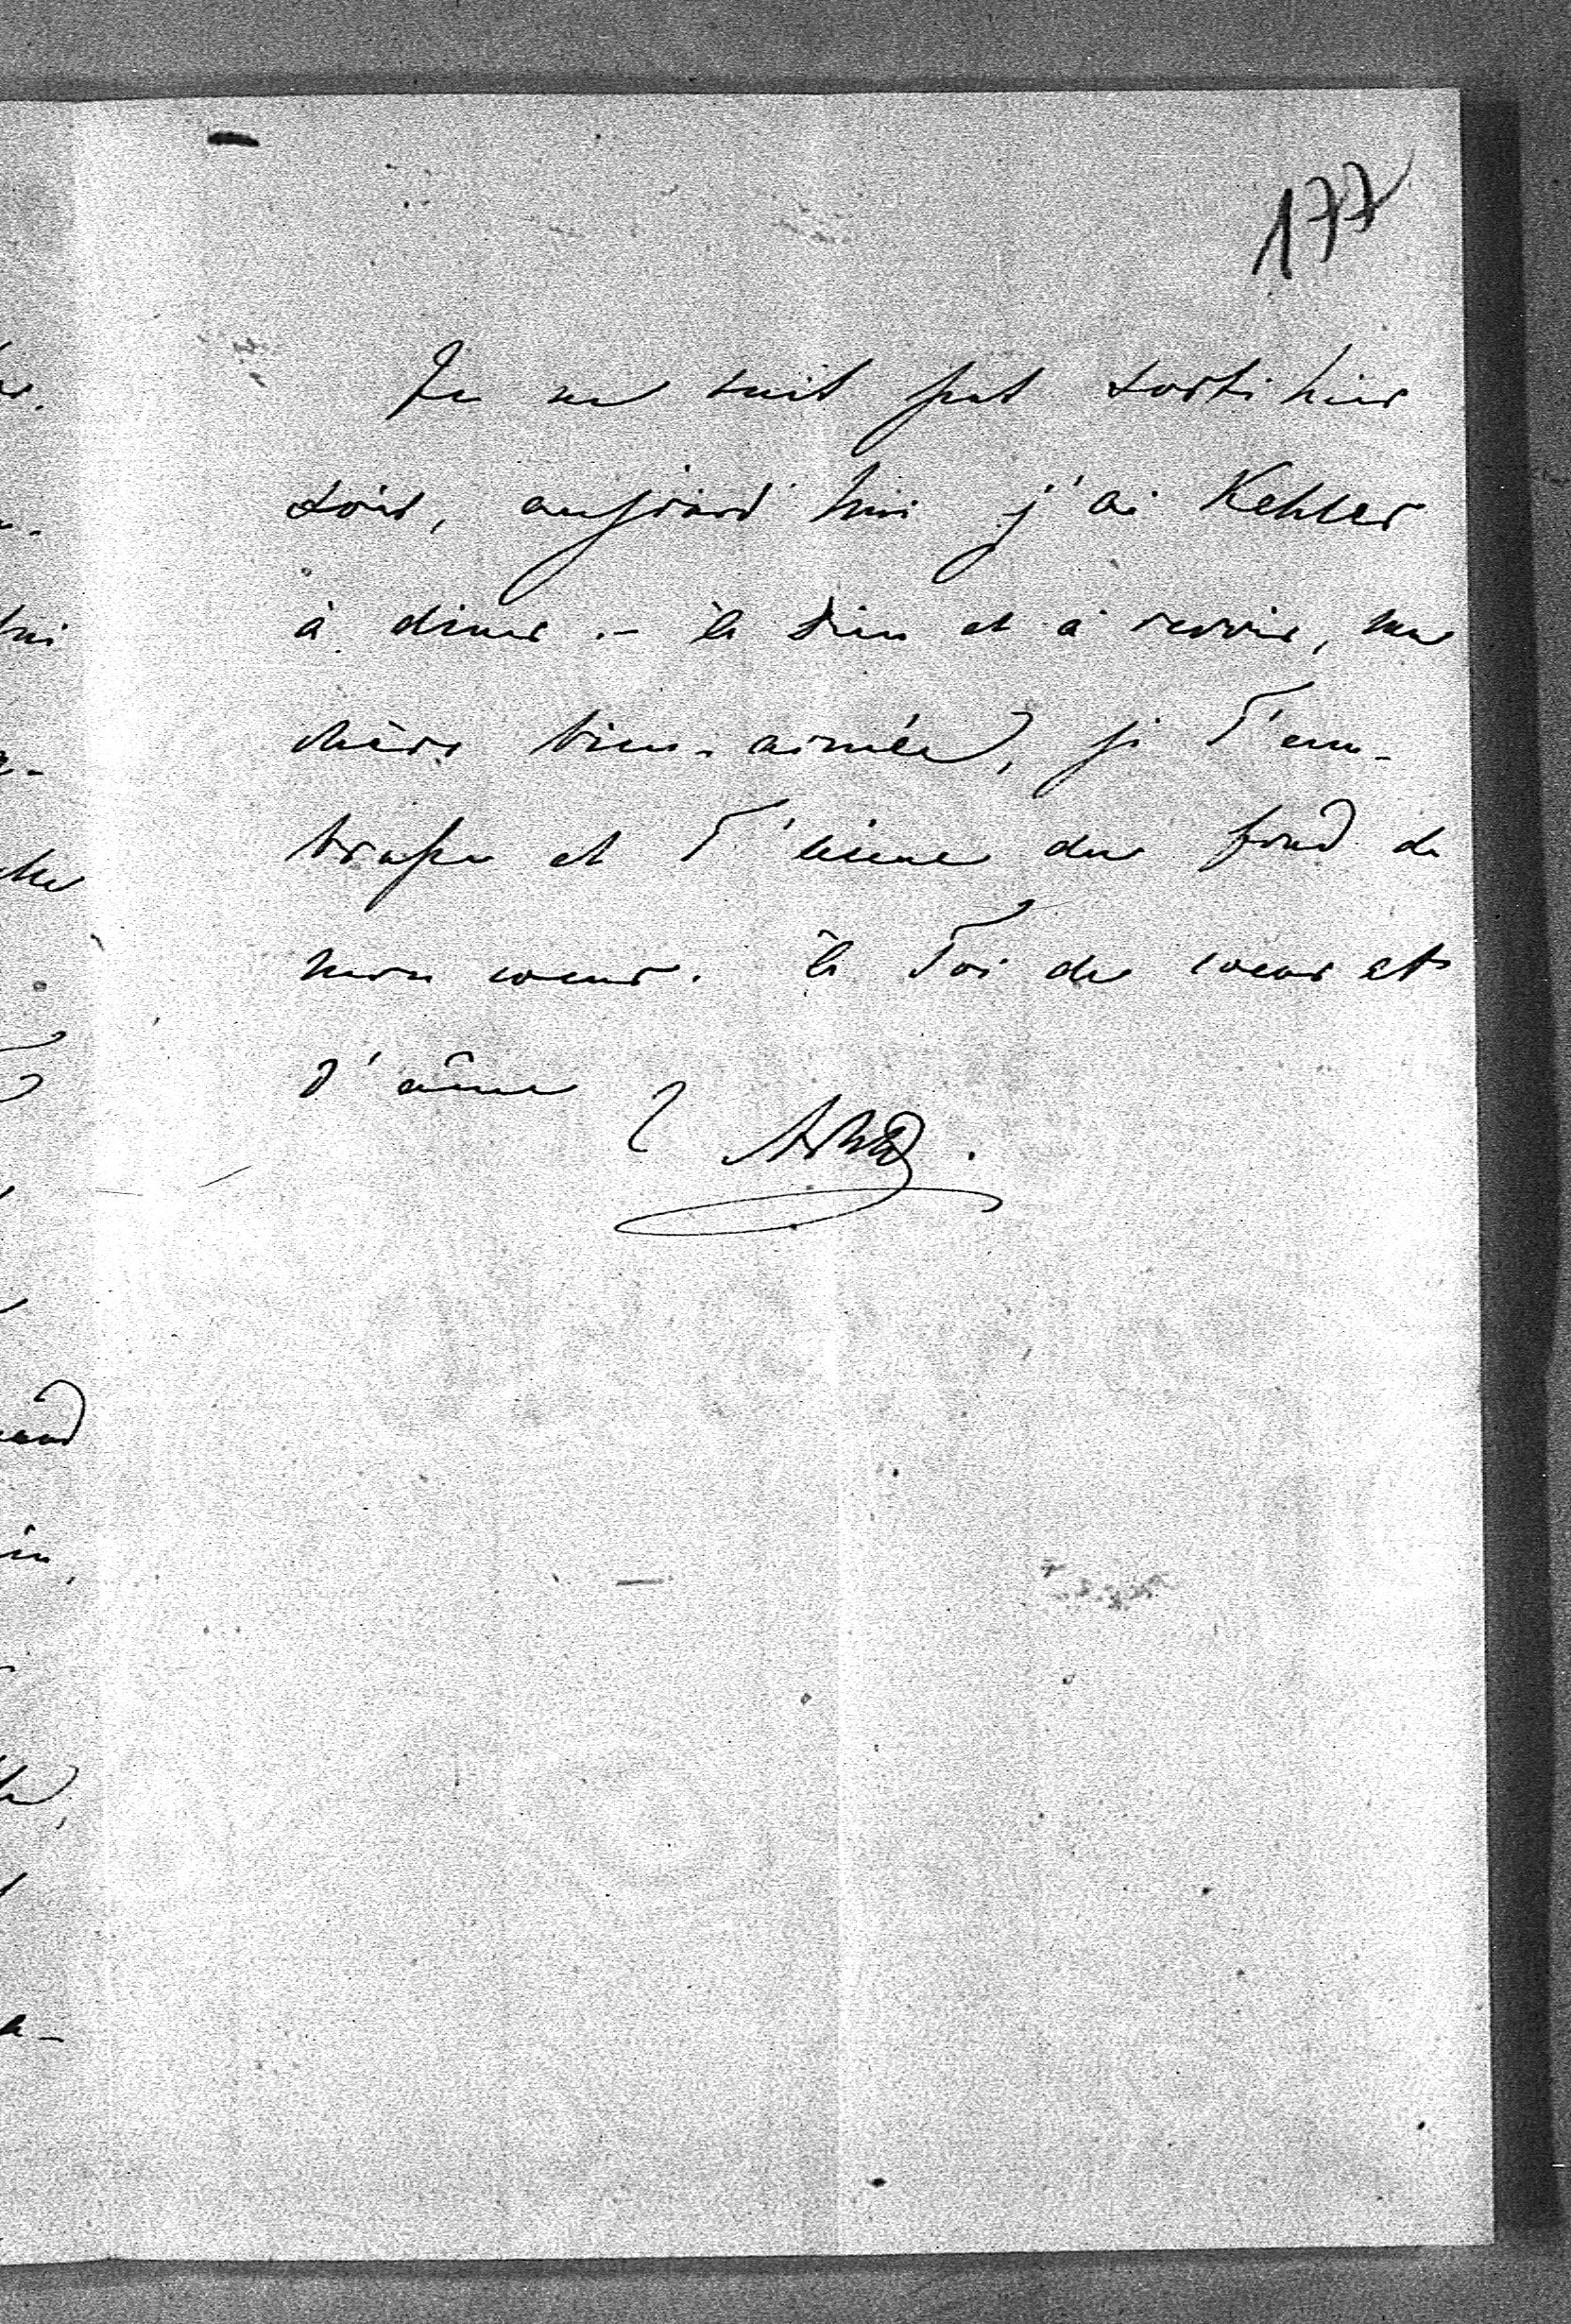 177
Je ne suis pas sorti hier
soir, aujourd'hui j'ai Kehler
à diner. – à Dieu et à revoir, ma
chère bien-aimée, je T'em-
brasse et T'aime du fond de
mon coeur. à Toi de coeur et
d'âme